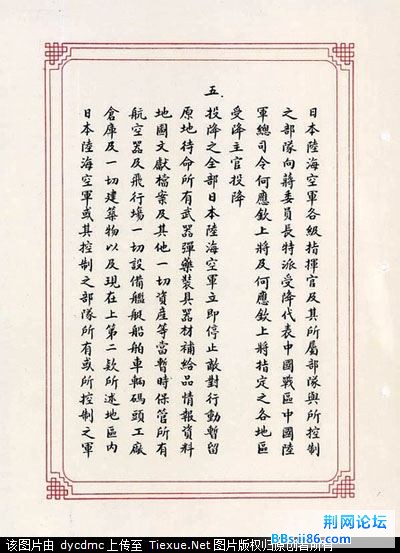 日本陸海空軍各級指揮官及其所屬部隊與所控制
之部隊向蔣委員長特派受降代表中國戰區中國陸
軍總司令何應欽上將及何應欽上將指定之各地區
受降主官投降
五.
投降之全部日本陸海空軍立即停止敵對行動暫留
原地待命所有武器彈藥裝具器材補給品情報資料
地圖文獻檔案及其他一切資產等當暫時保管所有
航空器及飛行場一切設備艦艇船舶車輛碼頭工廠
倉庫及一切建築物以及現在上第二款所述地區內
日本陸海空軍或其控制之部隊所有或所控制之軍
荆网论坛
BBs.ii86.com
该图片由 dycdmc 上传至 Tiexue.Net 图片版权归原创者所有